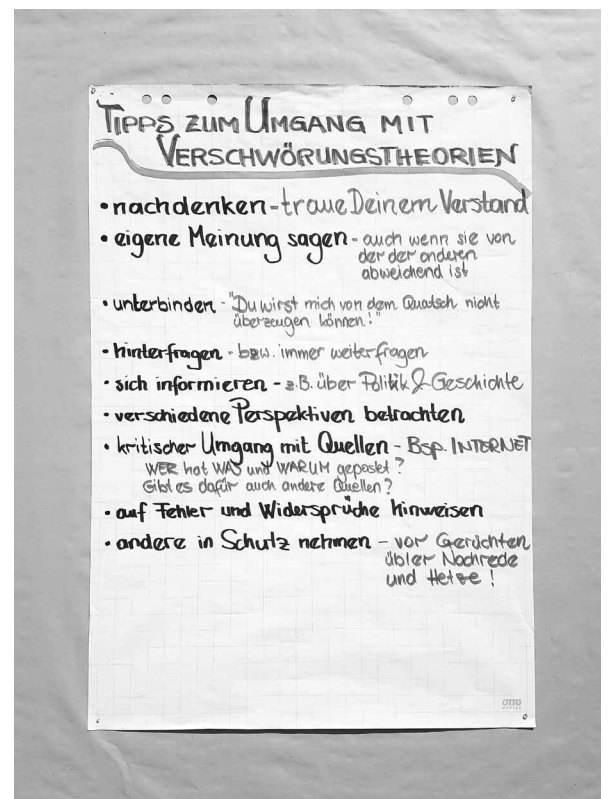 TIPPS ZUM UMGANG MIT
VERSCHWÖRUNGSTHEORIEN
• nachdenken - traue Deinem Verstand
• eigene Meinung sagen - auch wenn sie von
der der anderen
abweichend ist
• unterbinden - "Du wirst mich von dem Quatsch nicht
überzeugen können!"
• hinterfragen - bzw. immer weiterfragen
• sich informieren - z.B. über Politik & Geschichte
• verschiedene Perspektiven betrachten
• kritischer Umgang mit Quellen - Bsp. INTERNET
WER hat WAS und WARUM gepostet?
Gibt es dafür auch andere Quellen?
• auf Fehler und Widersprüche hinweisen
• andere in Schutz nehmen - vor Gerüchten
übler Nachrede
und Hetze!
OTTO